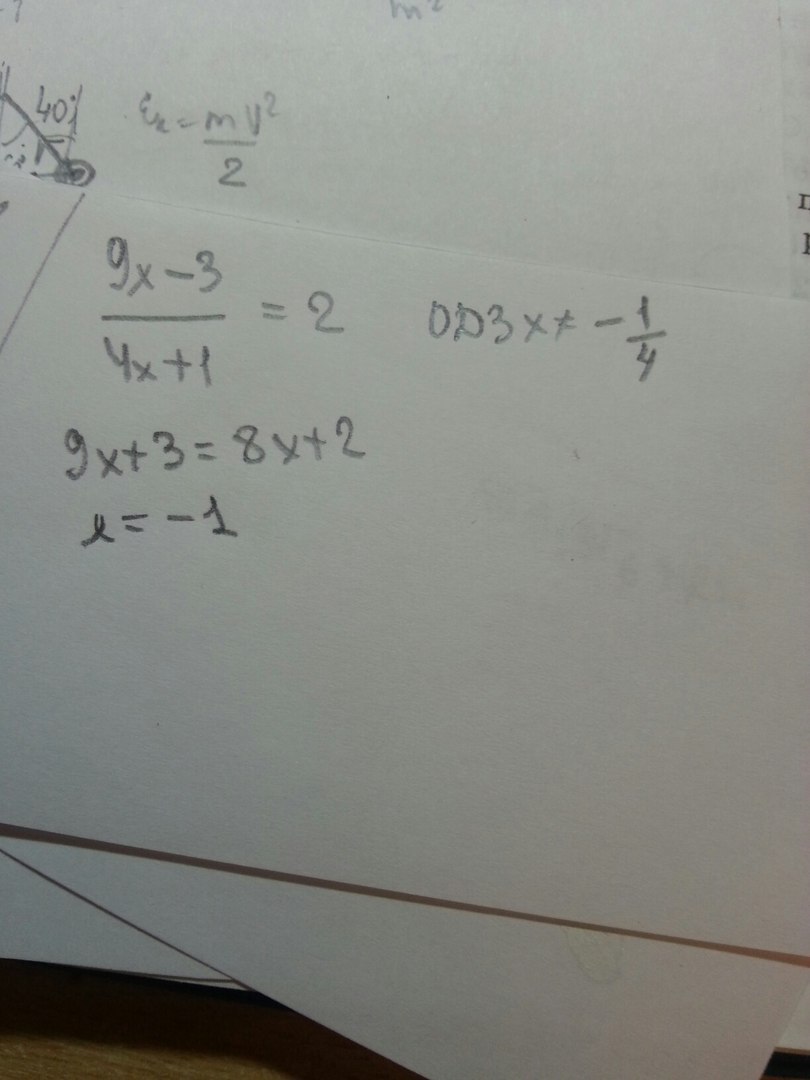 m²
40
Eк = mv²/2
(9x-3)/(4x+1) = 2 ОДЗ x ≠ -1/4
9x+3=8x+2
x = -1